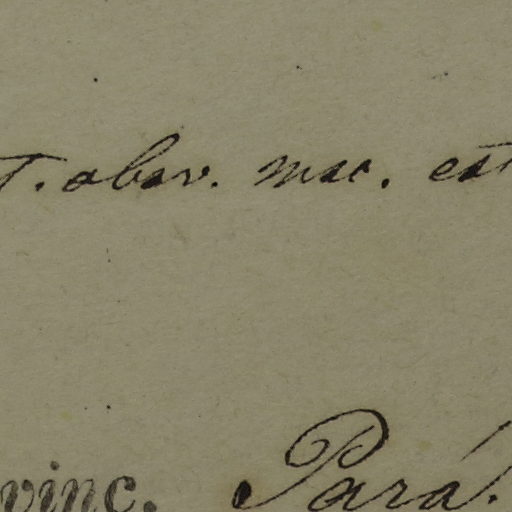 T. obov. mac. est
vinc. Pará.